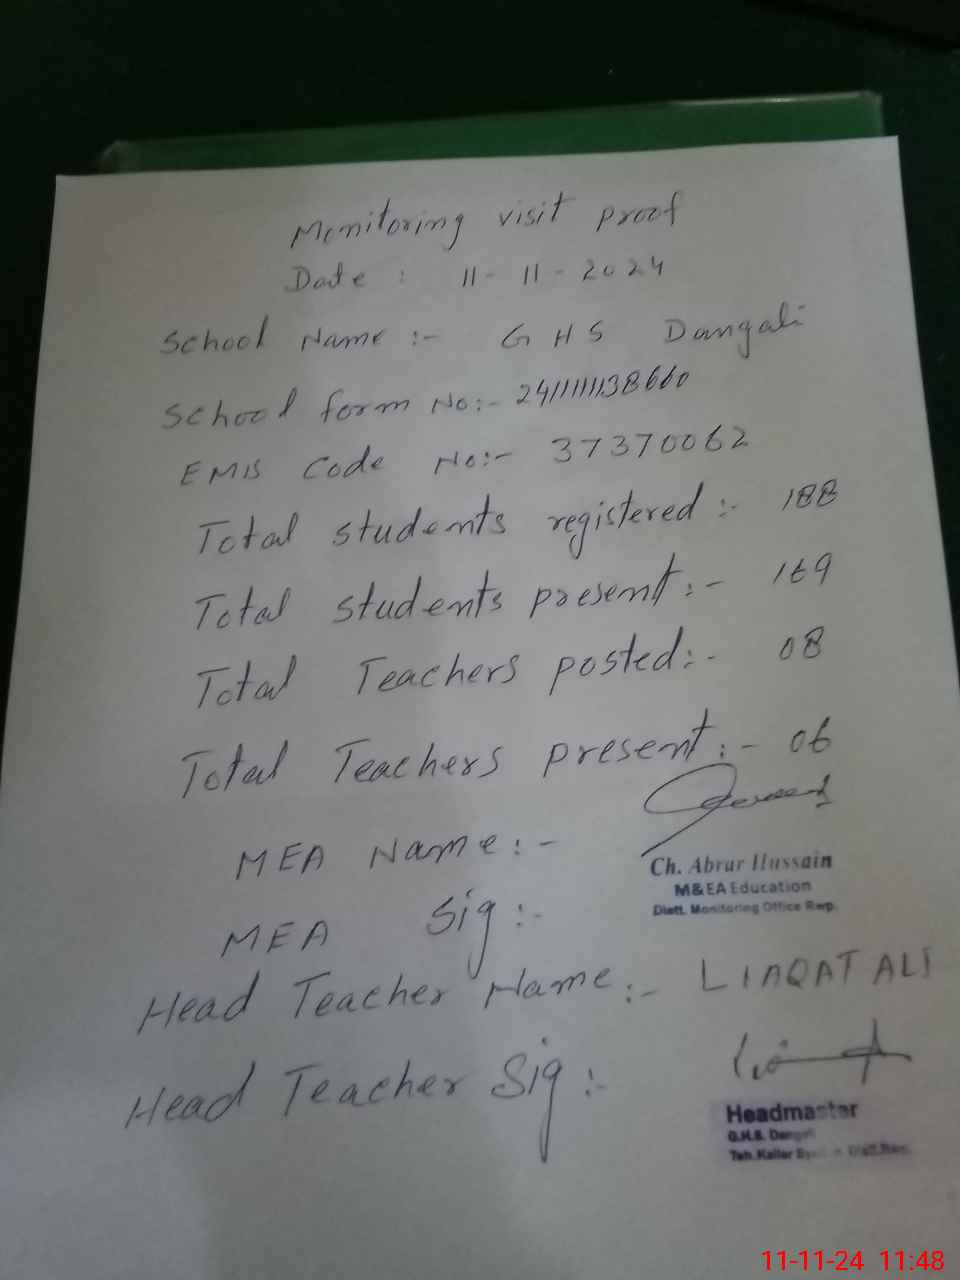 Monitoring visit proof
Date : 11-11-2024
School Name :- G H S Dangali
School form No:- 241111138660
EMIS Code No:- 37370062
Total students registered :- 188
Total students present :- 169
Total Teachers posted :- 08
Total Teachers present :- 06
MEA Name :-
Ch. Abrar Hussain
M&EA Education
Distt. Monitoring Office Rwp.
MEA Sig :-
Head Teacher Name :- LIAQAT ALI
Head Teacher Sig :-
Headmaster
G.H.S. Dangali
Teh. Kallar Distt. Rwp.
11-11-24 11:48